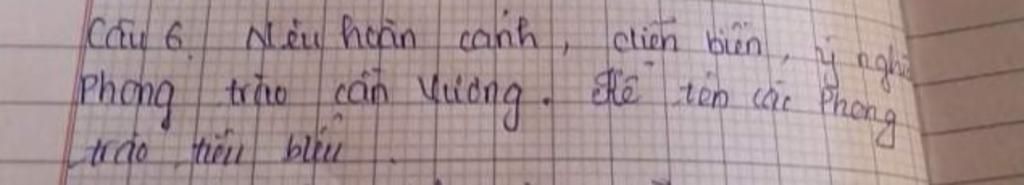 Câu 6. Nêu hoàn cảnh, diễn biến, ý nghĩ
Phong trào cần Vương. Kể tên các Phong
trào tiêu biểu.